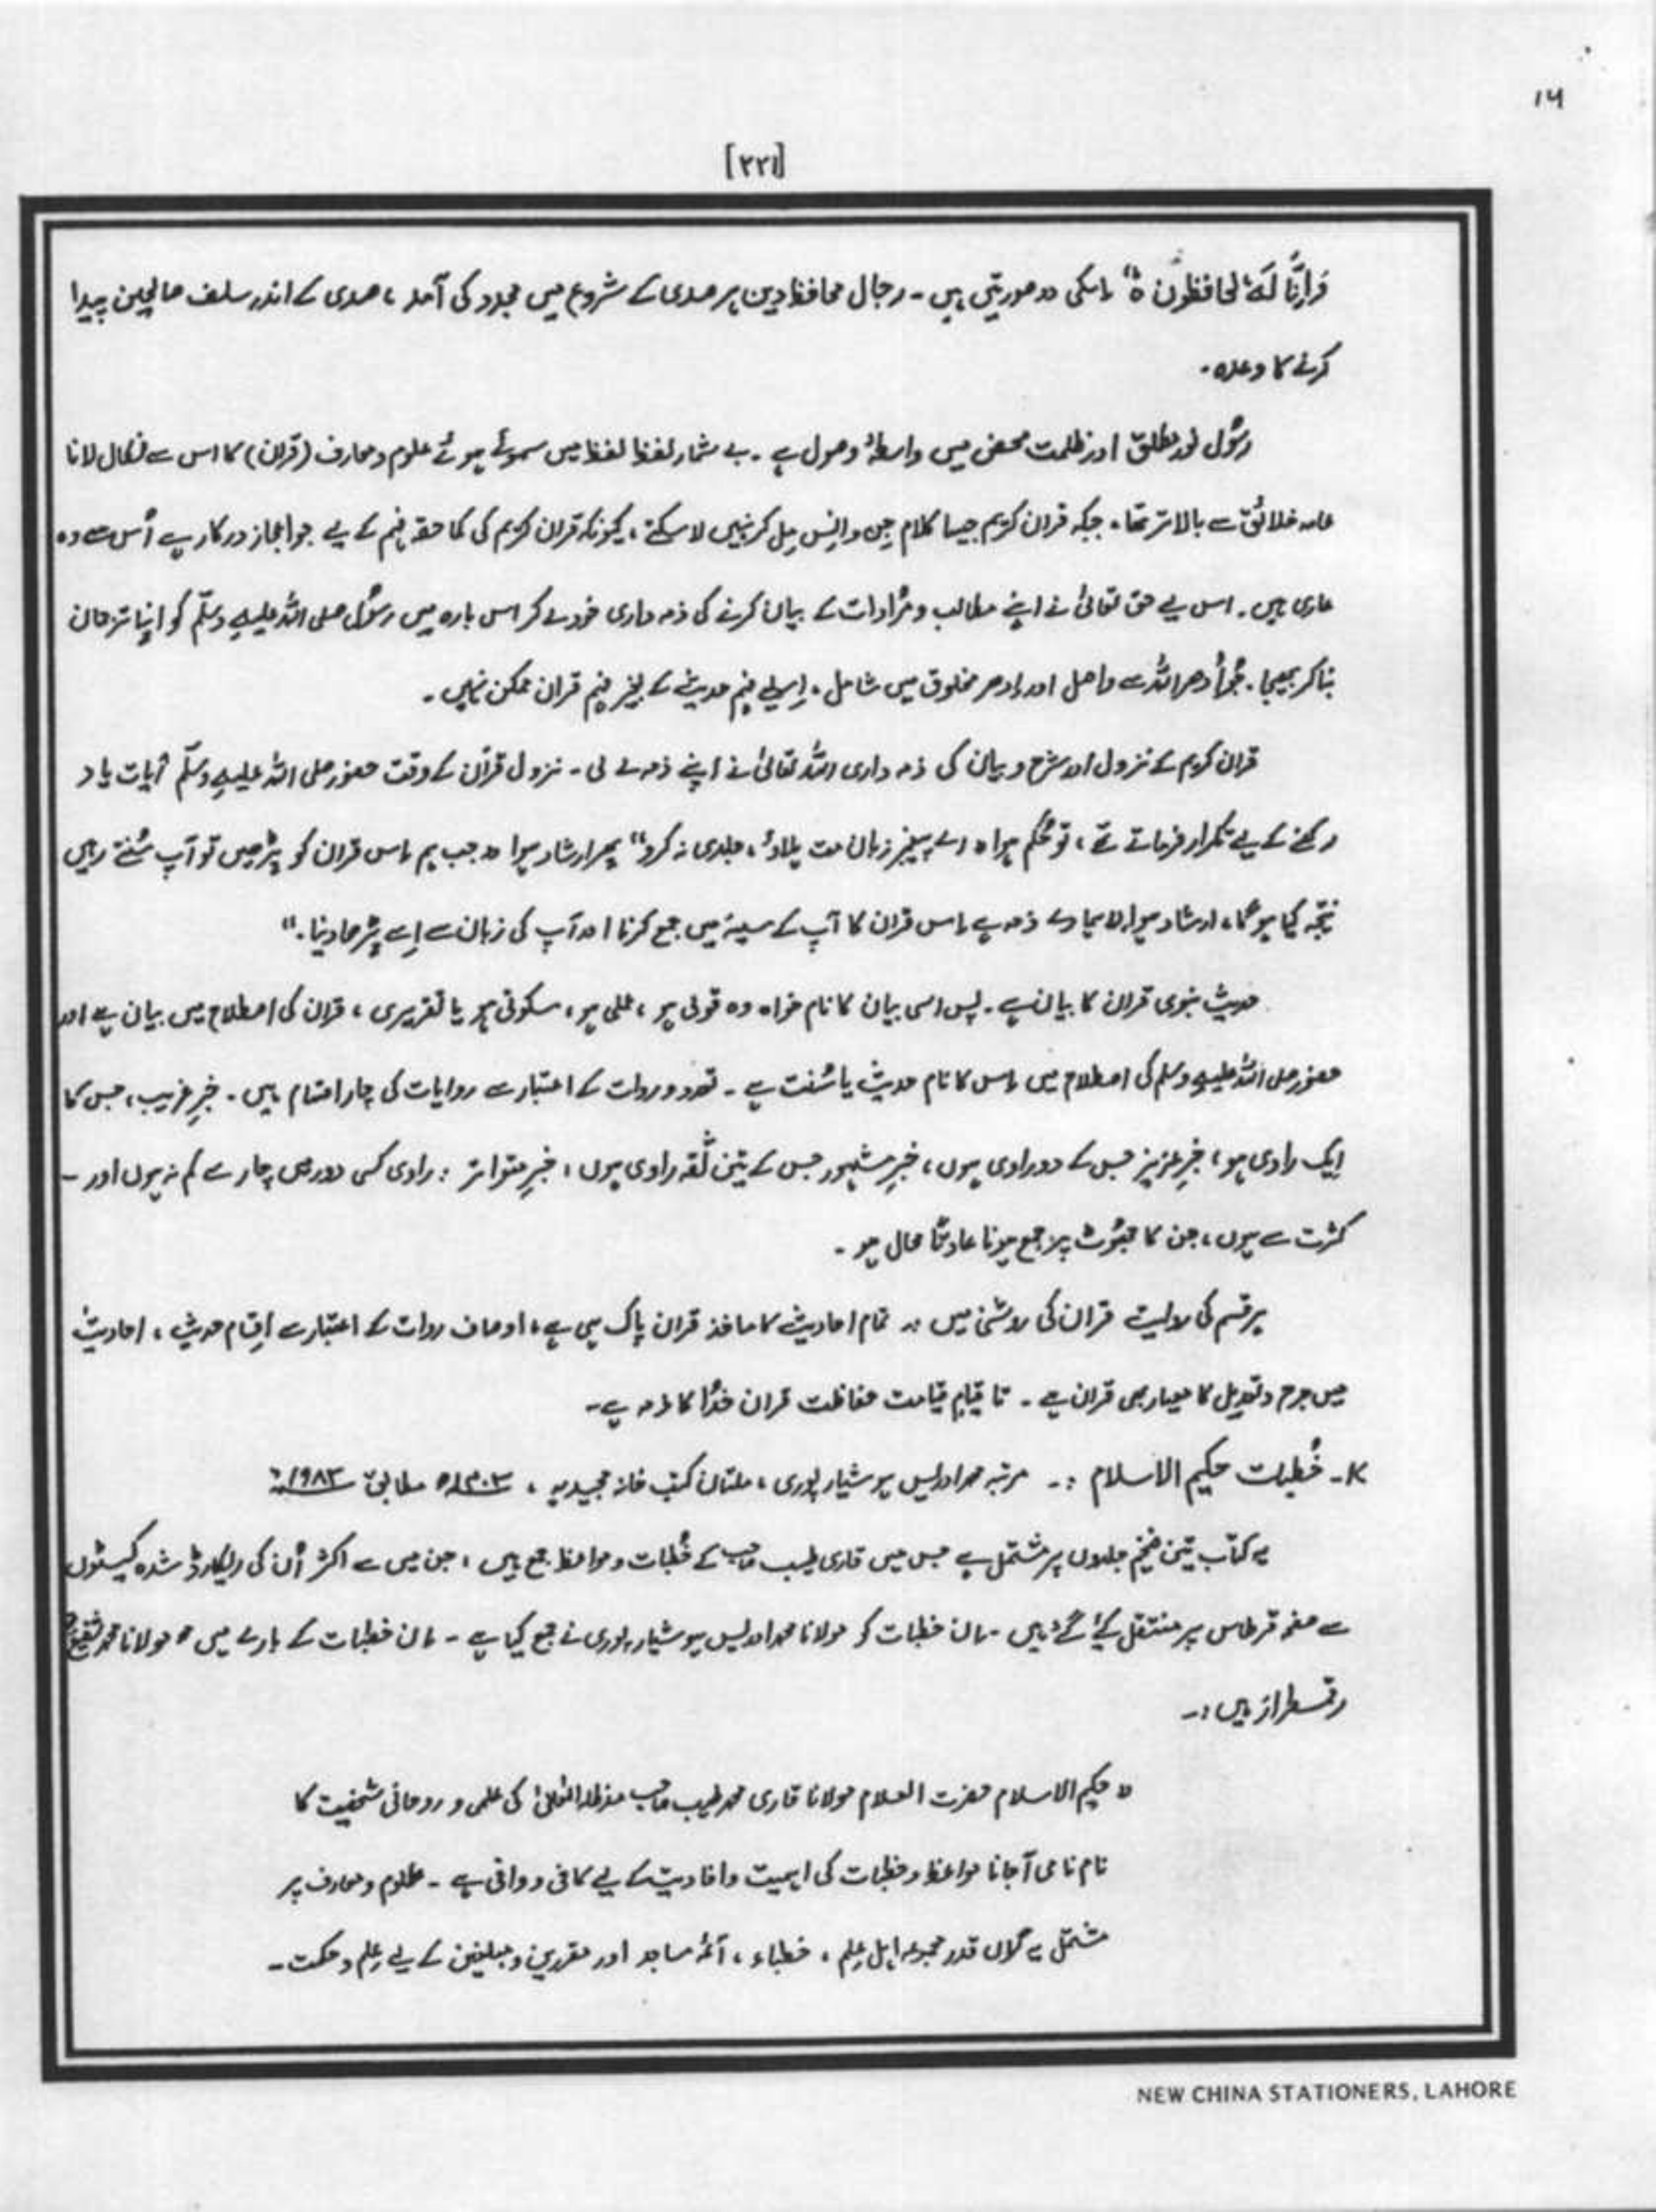 ۱۶
[۲۲۱]
وَاِنَّا لَهٗ لحافظون ہ“ اسکی دو صورتیں ہیں ۔ رجال محافظ دین ہر صدی کے شروع میں مجدد کی آمد ، صدی کے اندر سلف صالحین پیدا
کرنے کا وعدہ ۔
رسُول نور مطلق اور ظلمت محض میں واسطۂ وصول ہے ۔ بے شمار لفظ لفظ میں سموئے ہوئے علوم و معارف (قران) کا اس سے نکال لانا
عامہ خلائق سے بالاتر تھا ۔ جبکہ قران کریم جیسا کلام جن و انس مل کر نہیں لا سکتے ، کیونکہ قران کریم کی کما حقہ فہم کے لیے جو اعجاز درکار ہے اُس سے وہ
عاری ہیں ۔ اس لیے حق تعالیٰ نے اپنے مطالب و مُرادات کے بیان کرنے کی ذمہ داری خود لے کر اس بارہ میں رسُول صلی اللہ علیہ وسلّم کو اپنا ترجمان
بنا کر بھیجا ۔ جو اُدھر اللہ سے واصل اور اِدھر مخلوق میں شامل ، اِسلیے فہم حدیث کے بغیر فہم قران ممکن نہیں ۔
قران کریم کے نزول اور شرح و بیان کی ذمہ داری اللہ تعالیٰ نے اپنے ذمہ لے لی ۔ نزول قران کے وقت حضور صلی اللہ علیہ وسلّم آیات یاد
رکھنے کے لیے تکرار فرماتے تھے ، تو حُکم ہوا ” اے پیغمبر زبان مت ہلاؤ ، جلدی نہ کرو“ پھر ارشاد ہوا ” جب ہم اس قران کو پڑھیں تو آپ سُنتے رہیں
نتیجہ کیا ہو گا ، ارشاد ہوا ” ہمارے ذمہ ہے اس قران کا آپ کے سینہ میں جمع کرنا اور آپ کی زبان سے اِسے پڑھا دینا ۔“
حدیث نبوی قران کا بیان ہے ۔ پس اسی بیان کا نام خواہ وہ قولی ہو ، عملی ہو ، سکوتی ہو یا تقریری ، قران کی اصطلاح میں بیان ہے اور
حضور صلی اللہ علیہ وسلم کی اصطلاح میں اس کا نام حدیث یا سُنت ہے ۔ تعدد و روات کے اعتبار سے روایات کی چار اقسام ہیں ۔ خبرِ غریب ، جس کا
ایک راوی ہو ، خبرِ عزیز جس کے دو راوی ہوں ، خبرِ مشہور جس کے تین ثقہ راوی ہوں ، خبرِ متواتر : راوی کسی دور میں چار سے کم نہ ہوں اور ۔
کثرت سے ہوں ، جن کا جھُوٹ پر جمع ہونا عادتاً محال ہو ۔
ہر قسم کی روایت قران کی روشنی میں ” تمام احادیث کا ماخذ قران پاک ہی ہے ، اوصاف روات کے اعتبار سے اقسام حدیث ، احادیث
میں جرح و تعدیل کا معیار بھی قران ہے ۔ تا قیامِ قیامت حفاظت قران خدا کا ذمہ ہے ۔
۲۔ خُطبات حکیم الاسلام :۔ مرتبہ محمد ادریس ہوشیارپوری ، ملتان کتب خانہ مجیدیہ ، ۱۴۰۳ھ مطابق ۱۹۸۳ء
یہ کتاب تین ضخیم جلدوں پر مشتمل ہے جس میں قاری طیب صاحب کے خُطبات و مواعظ جمع ہیں ، جن میں سے اکثر اُن کی ریکارڈ شدہ کیسٹوں
سے صفحہ قرطاس پر منتقل کیے گئے ہیں ۔ ان خطبات کو مولانا محمد ادریس ہوشیارپوری نے جمع کیا ہے ۔ ان خطبات کے بارے میں مولانا محمد شفیع
رقمطراز ہیں :۔
” حکیم الاسلام حضرت العلام مولانا قاری محمد طیب صاحب مدظلہ العالیٰ کی علمی و روحانی شخصیت کا
نام نامی آ جانا مواعظ و خطبات کی اہمیت و افادیت کے لیے کافی و وافی ہے ۔ علوم و معارف پر
مشتمل یہ گراں قدر مجموعہ اہل علم ، خطباء ، آئمہ مساجد اور مقررین و مبلغین کے لیے علم و حکمت ۔
NEW CHINA STATIONERS, LAHORE